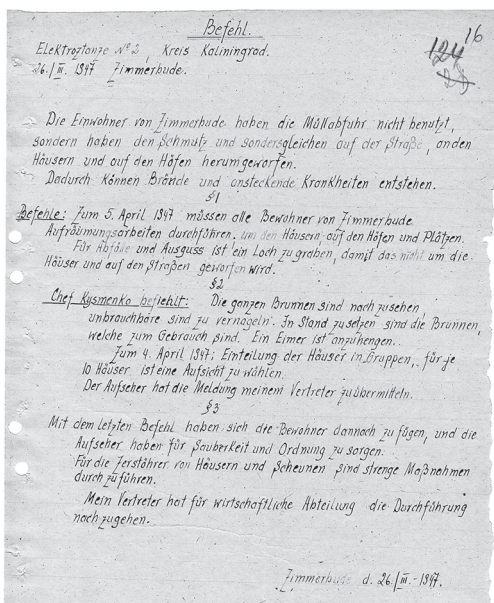 Befehl.
16
124
Elektroztanze № 2, Kreis Kaliningrad.
26./III. 1947 Zimmerbude.
Die Einwohner von Zimmerbude haben die Müllabfuhr nicht benutzt,
sondern haben den Schmutz und sondersgleichen auf der Straße, an den
Häusern und auf den Höfen herumgeworfen.
Dadurch können Brände und ansteckende Krankheiten entstehen.
§1
Befehle: Zum 5. April 1947 müssen alle Bewohner von Zimmerbude
Aufräumungsarbeiten durchführen, um den Häusern, auf den Höfen und Plätzen.
Für Abfälle und Ausguss ist ein Loch zu graben, damit das nicht um die
Häuser und auf den Straßen geworfen wird.
§2
Chef Kysmenko befiehlt: Die ganzen Brunnen sind nach zu sehen,
unbrauchbare sind zu vernageln. In Stand zu setzen sind die Brunnen,
welche zum Gebrauch sind. Ein Eimer ist anzuhengen.
Zum 4. April 1947: Einteilung der Häuser in Gruppen, für je
10 Häuser ist eine Aufsicht zu wählen.
Der Aufseher hat die Meldung meinem Vertreter zu übermitteln.
§3
Mit dem letzten Befehl haben sich die Bewohner dannach zu fügen, und die
Aufseher haben für Sauberkeit und Ordnung zu sorgen.
Für die Zerstöhrer von Häusern und Scheunen sind strenge Maßnahmen
durch zu führen.
Mein Vertreter hat für wirtschaftliche Abteilung die Durchführung
nach zu gehen.
Zimmerbude d. 26./III.-1947.